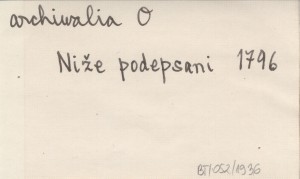 archiwalia O
Niže podepsani 1796
BT/052/1936